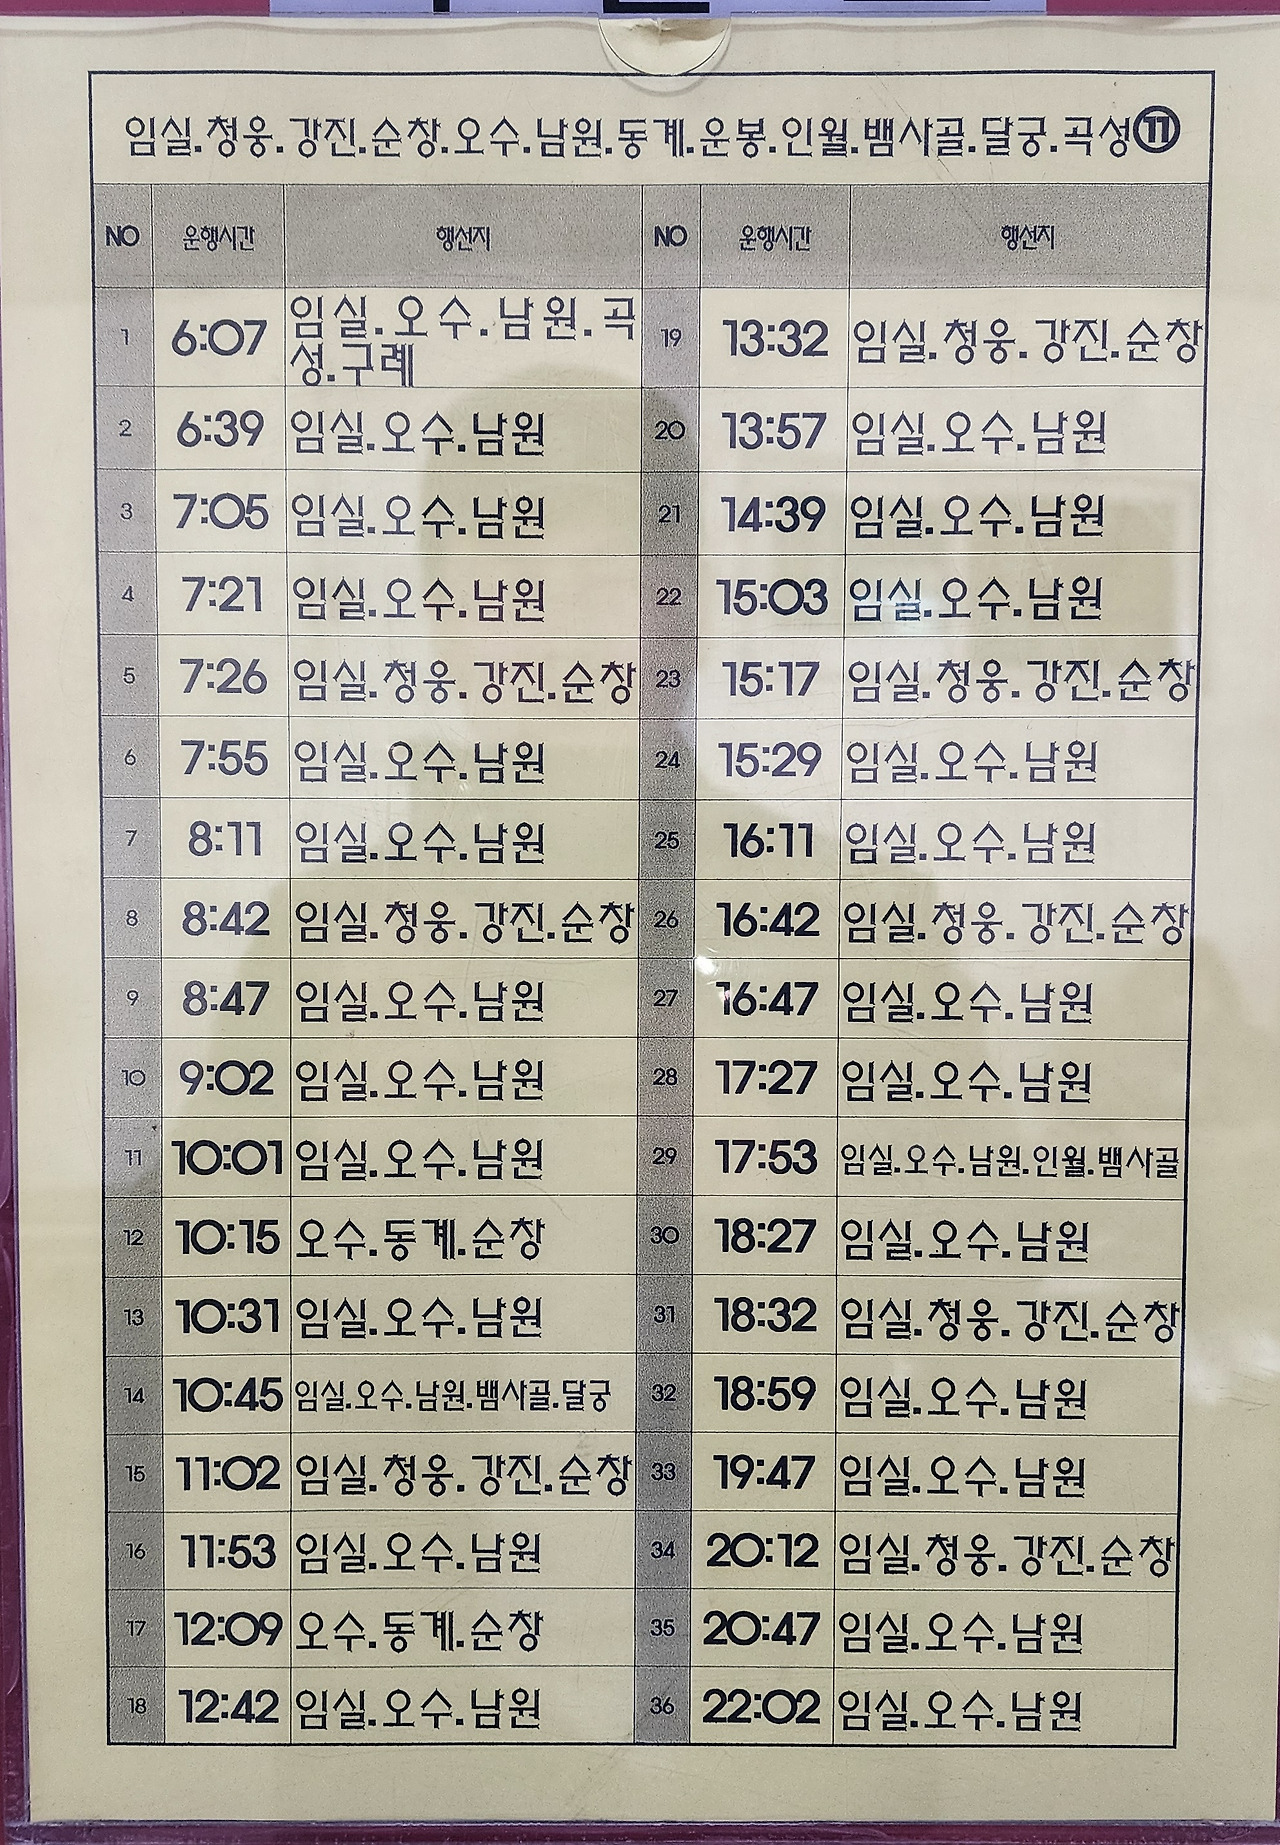 임실.청웅.강진.순창.오수.남원.동계.운봉.인월.뱀사골.달궁.곡성⑪
NO 운행시간 행선지 NO 운행시간 행선지
1 6:07 임실.오수.남원.곡성.구례 19 13:32 임실.청웅.강진.순창
2 6:39 임실.오수.남원 20 13:57 임실.오수.남원
3 7:05 임실.오수.남원 21 14:39 임실.오수.남원
4 7:21 임실.오수.남원 22 15:03 임실.오수.남원
5 7:26 임실.청웅.강진.순창 23 15:17 임실.청웅.강진.순창
6 7:55 임실.오수.남원 24 15:29 임실.오수.남원
7 8:11 임실.오수.남원 25 16:11 임실.오수.남원
8 8:42 임실.청웅.강진.순창 26 16:42 임실.청웅.강진.순창
9 8:47 임실.오수.남원 27 16:47 임실.오수.남원
10 9:02 임실.오수.남원 28 17:27 임실.오수.남원
11 10:01 임실.오수.남원 29 17:53 임실.오수.남원.인월.뱀사골
12 10:15 오수.동계.순창 30 18:27 임실.오수.남원
13 10:31 임실.오수.남원 31 18:32 임실.청웅.강진.순창
14 10:45 임실.오수.남원.뱀사골.달궁 32 18:59 임실.오수.남원
15 11:02 임실.청웅.강진.순창 33 19:47 임실.오수.남원
16 11:53 임실.오수.남원 34 20:12 임실.청웅.강진.순창
17 12:09 오수.동계.순창 35 20:47 임실.오수.남원
18 12:42 임실.오수.남원 36 22:02 임실.오수.남원